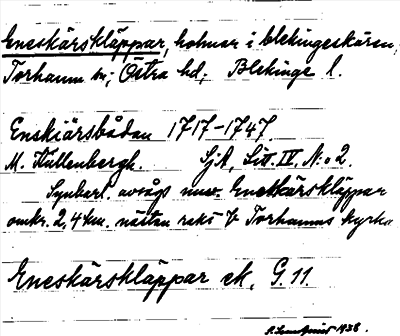 Eneskärskläppar, holmar i Blekingeskären,
Torhamn sn, Östra hd, Blekinge l.
Enskiärsbådan 1717–1747.
M. Hallenbergh. SjA, Litt. IV, N:o 2.
Synbarl. avsågs nuv. Eneskärskläppar
omkr. 2,4 km. nästan rakt V Torhamns kyrka
Eneskärskläppar ek. G. 11.
1938.